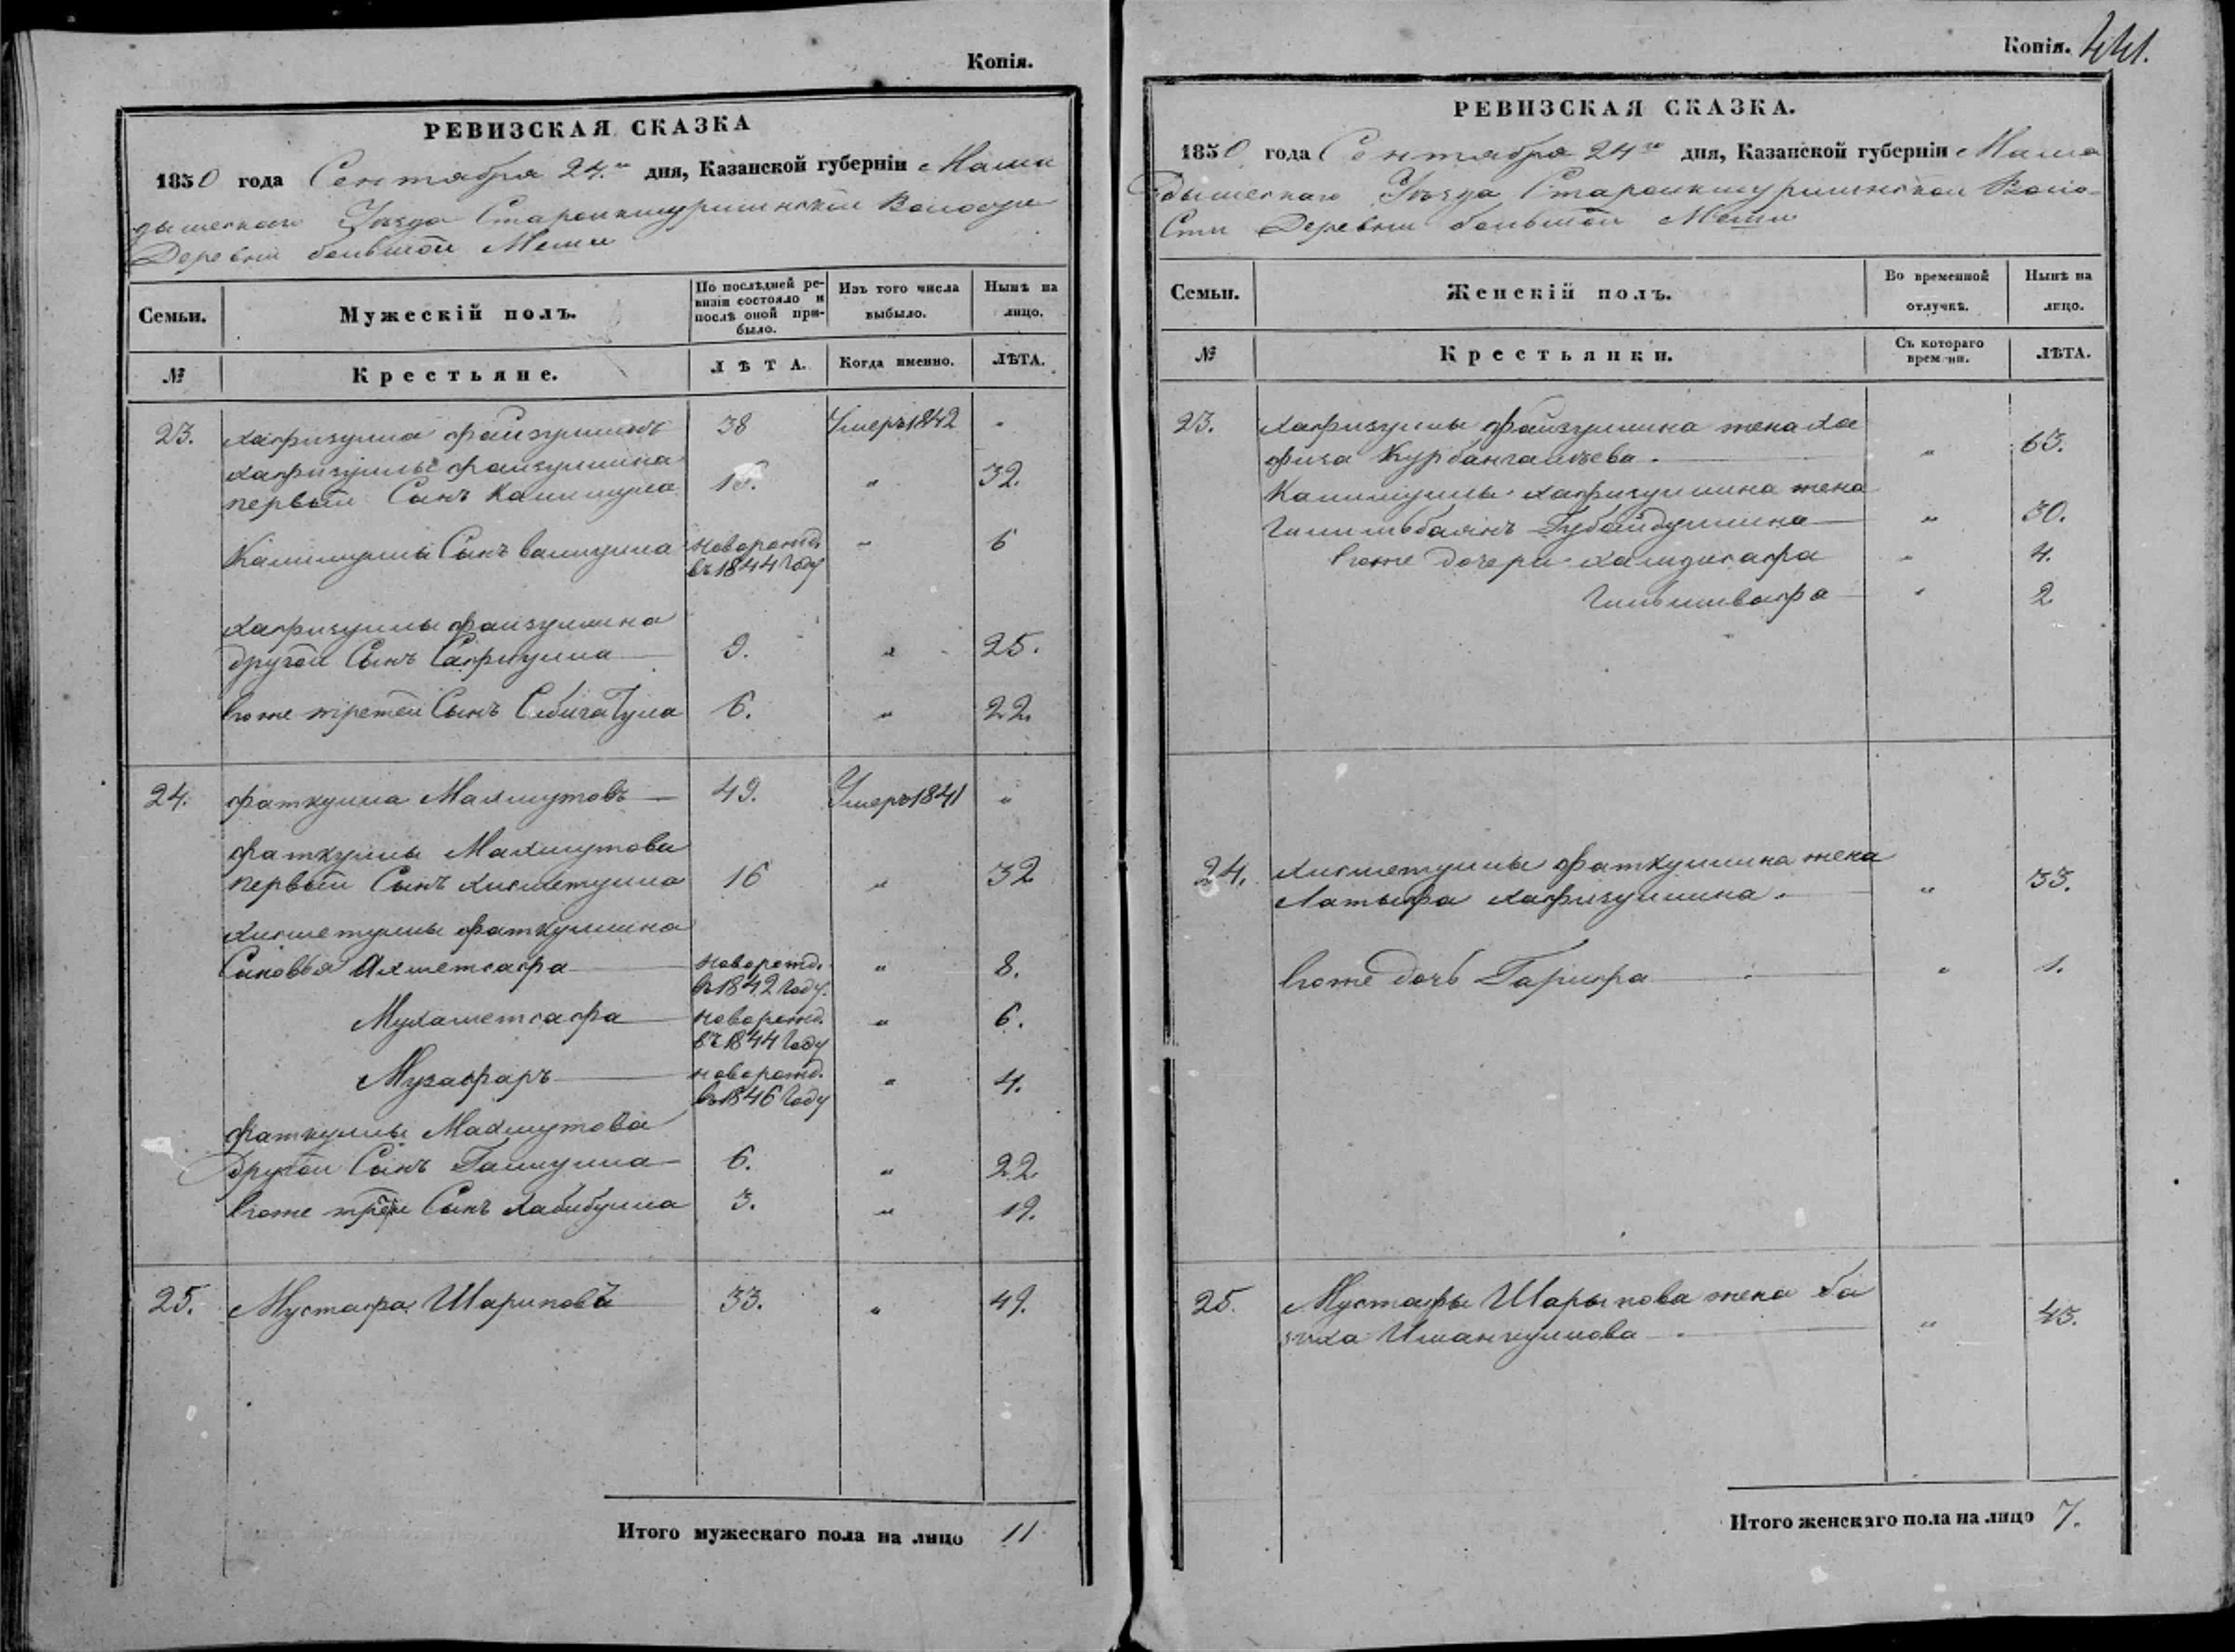 Копія.
РЕВИЗСКАЯ СКАЗКА
1850 года Сентября 24.го дня, Казанской губерніи Мама
дышскаго Уѣзда Староикшурминской Волости
Деревни большой Меши
Семьи.
Мужескій полъ.
По послѣдней ре-
визіи состояло и
послѣ оной при-
было.
Изъ того числа
выбыло.
Нынѣ на
лицо.
№
Крестьяне.
ЛѢТА.
Когда именно.
ЛѢТА.
23. Хафизулла файзуллинъ 38 Умеръ 1842 "
Хафизуллы файзуллина
первый Сынъ Калимулла 16. " 32.
Калимуллы Сынъ валиулла новорожд. " 6
въ 1844 Году
Хафизуллы файзуллина
другой Сынъ Сафиулла 9. " 25.
Егоже третей Сынъ Сибигатулла 6. " 22.
24. фаткулла Махмутовъ 49. Умеръ 1841 "
фаткуллы Махмутова
первый Сынъ Хисметулла 16 " 32
Хисметуллы фаткуллина
Сыновья Ахметсафа новорожд. " 8.
въ 1842 Году.
Мухаметсафа новорожд. " 6.
въ 1844 Году
Музафаръ новорожд. " 4.
въ 1846 Году
фаткуллы Махмутова
другой Сынъ Галиулла 6. " 22
Егоже трей Сынъ Хабибулла 3. " 19.
25. Мустафа Шариповъ 33. " 49.
Итого мужескаго пола на лицо 11
Копія. 441.
РЕВИЗСКАЯ СКАЗКА.
1850 года Сентября 24го дня, Казанской губерніи Мама
дышскаго Уѣзда Староикшурминской Воло-
сти Деревни большой Меши
Семьи.
Женскій полъ.
Во временной
отлучкѣ.
Нынѣ на
лицо.
№
Крестьянки.
Съ котораго
времени.
ЛѢТА.
23. Хафизуллы файзуллина жена Ха
физа Курбангалѣева. " 63.
Калимуллы Хафизуллина жена
Гильмбаянъ Губайдуллина " 30.
Егоже дочери Халидисафа " 4.
Гильмивафа " 2
24. Хисметуллы фаткуллина жена
Латыфа Хафизуллина. " 33.
Егоже дочь Гарифа " 1.
25. Мустафы Шарыпова жена ба
зиха Ишанкулова " 43.
Итого женскаго пола на лицо 7.